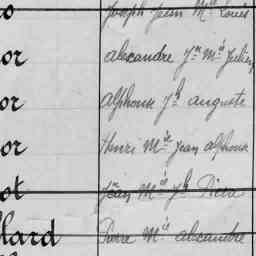 o Joseph Jean Mie Louis
or alexandre Jn Mie Julien
or alphonse Jh auguste
or Henri Mie Jean alphonse
ot Jean Mie Jh Pierre
llard Pierre Mie alexandre